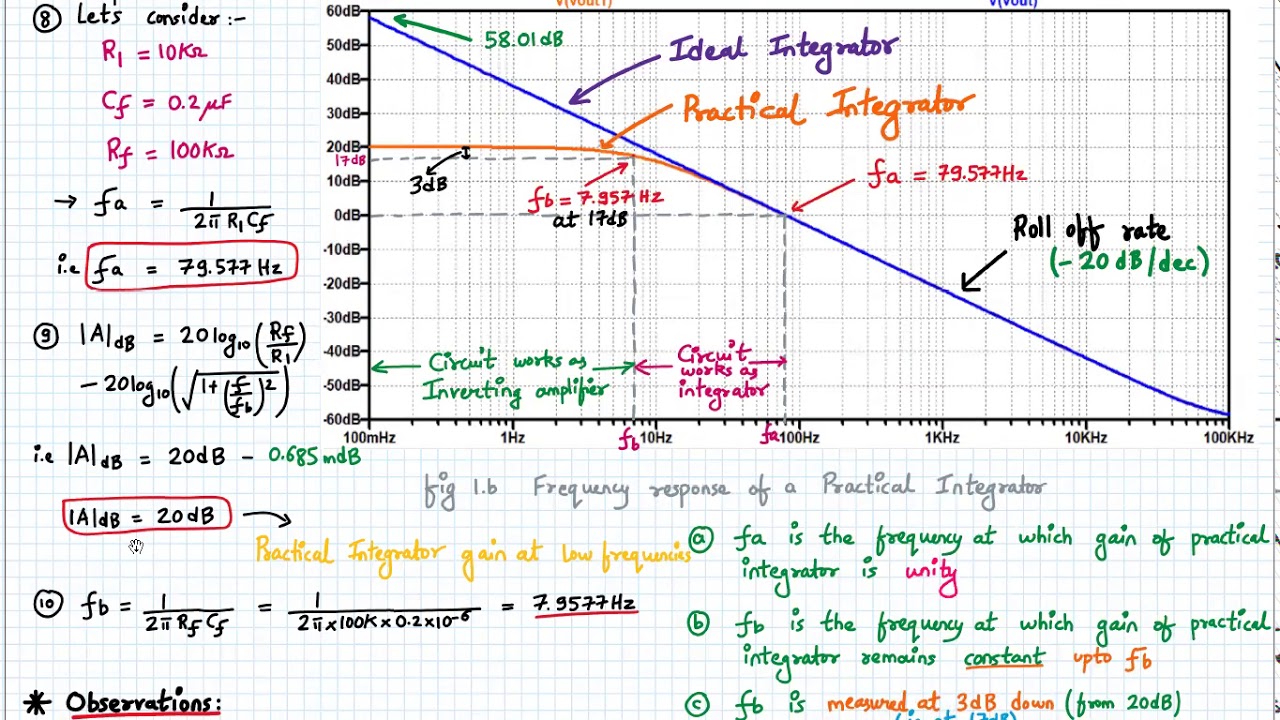 ⑧ Let's consider :-
R1 = 10KΩ
Cf = 0.2 μF
Rf = 100KΩ
→ fa = 1 / 2π R1 Cf
i.e fa = 79.577 Hz
⑨ |A|dB = 20log10 (Rf/R1)
- 20log10 (√(1+(f/fb)²))
i.e |A|dB = 20dB - 0.685 mdB
|A|dB = 20dB
Practical Integrator gain at low frequencies
⑩ fb = 1 / 2π Rf Cf = 1 / 2π × 100K × 0.2 × 10⁻⁶ = 7.9577 Hz
* Observations:
V(vout1)
V(vout)
60dB
50dB
40dB
30dB
20dB
17dB
10dB
0dB
-10dB
-20dB
-30dB
-40dB
-50dB
-60dB
58.01 dB
Ideal Integrator
Practical Integrator
3dB
fb = 7.957 Hz
at 17dB
fa = 79.577Hz
Roll off rate
(-20 dB/dec)
Circuit works as
Inverting amplifier
Circuit
works as
integrator
100mHz 1Hz fb 10Hz fa 100Hz 1KHz 10KHz 100KHz
fig 1.b Frequency response of a Practical Integrator
ⓐ fa is the frequency at which gain of practical
integrator is unity
ⓑ fb is the frequency at which gain of practical
integrator remains constant upto fb
ⓒ fb is measured at 3dB down (from 20dB)